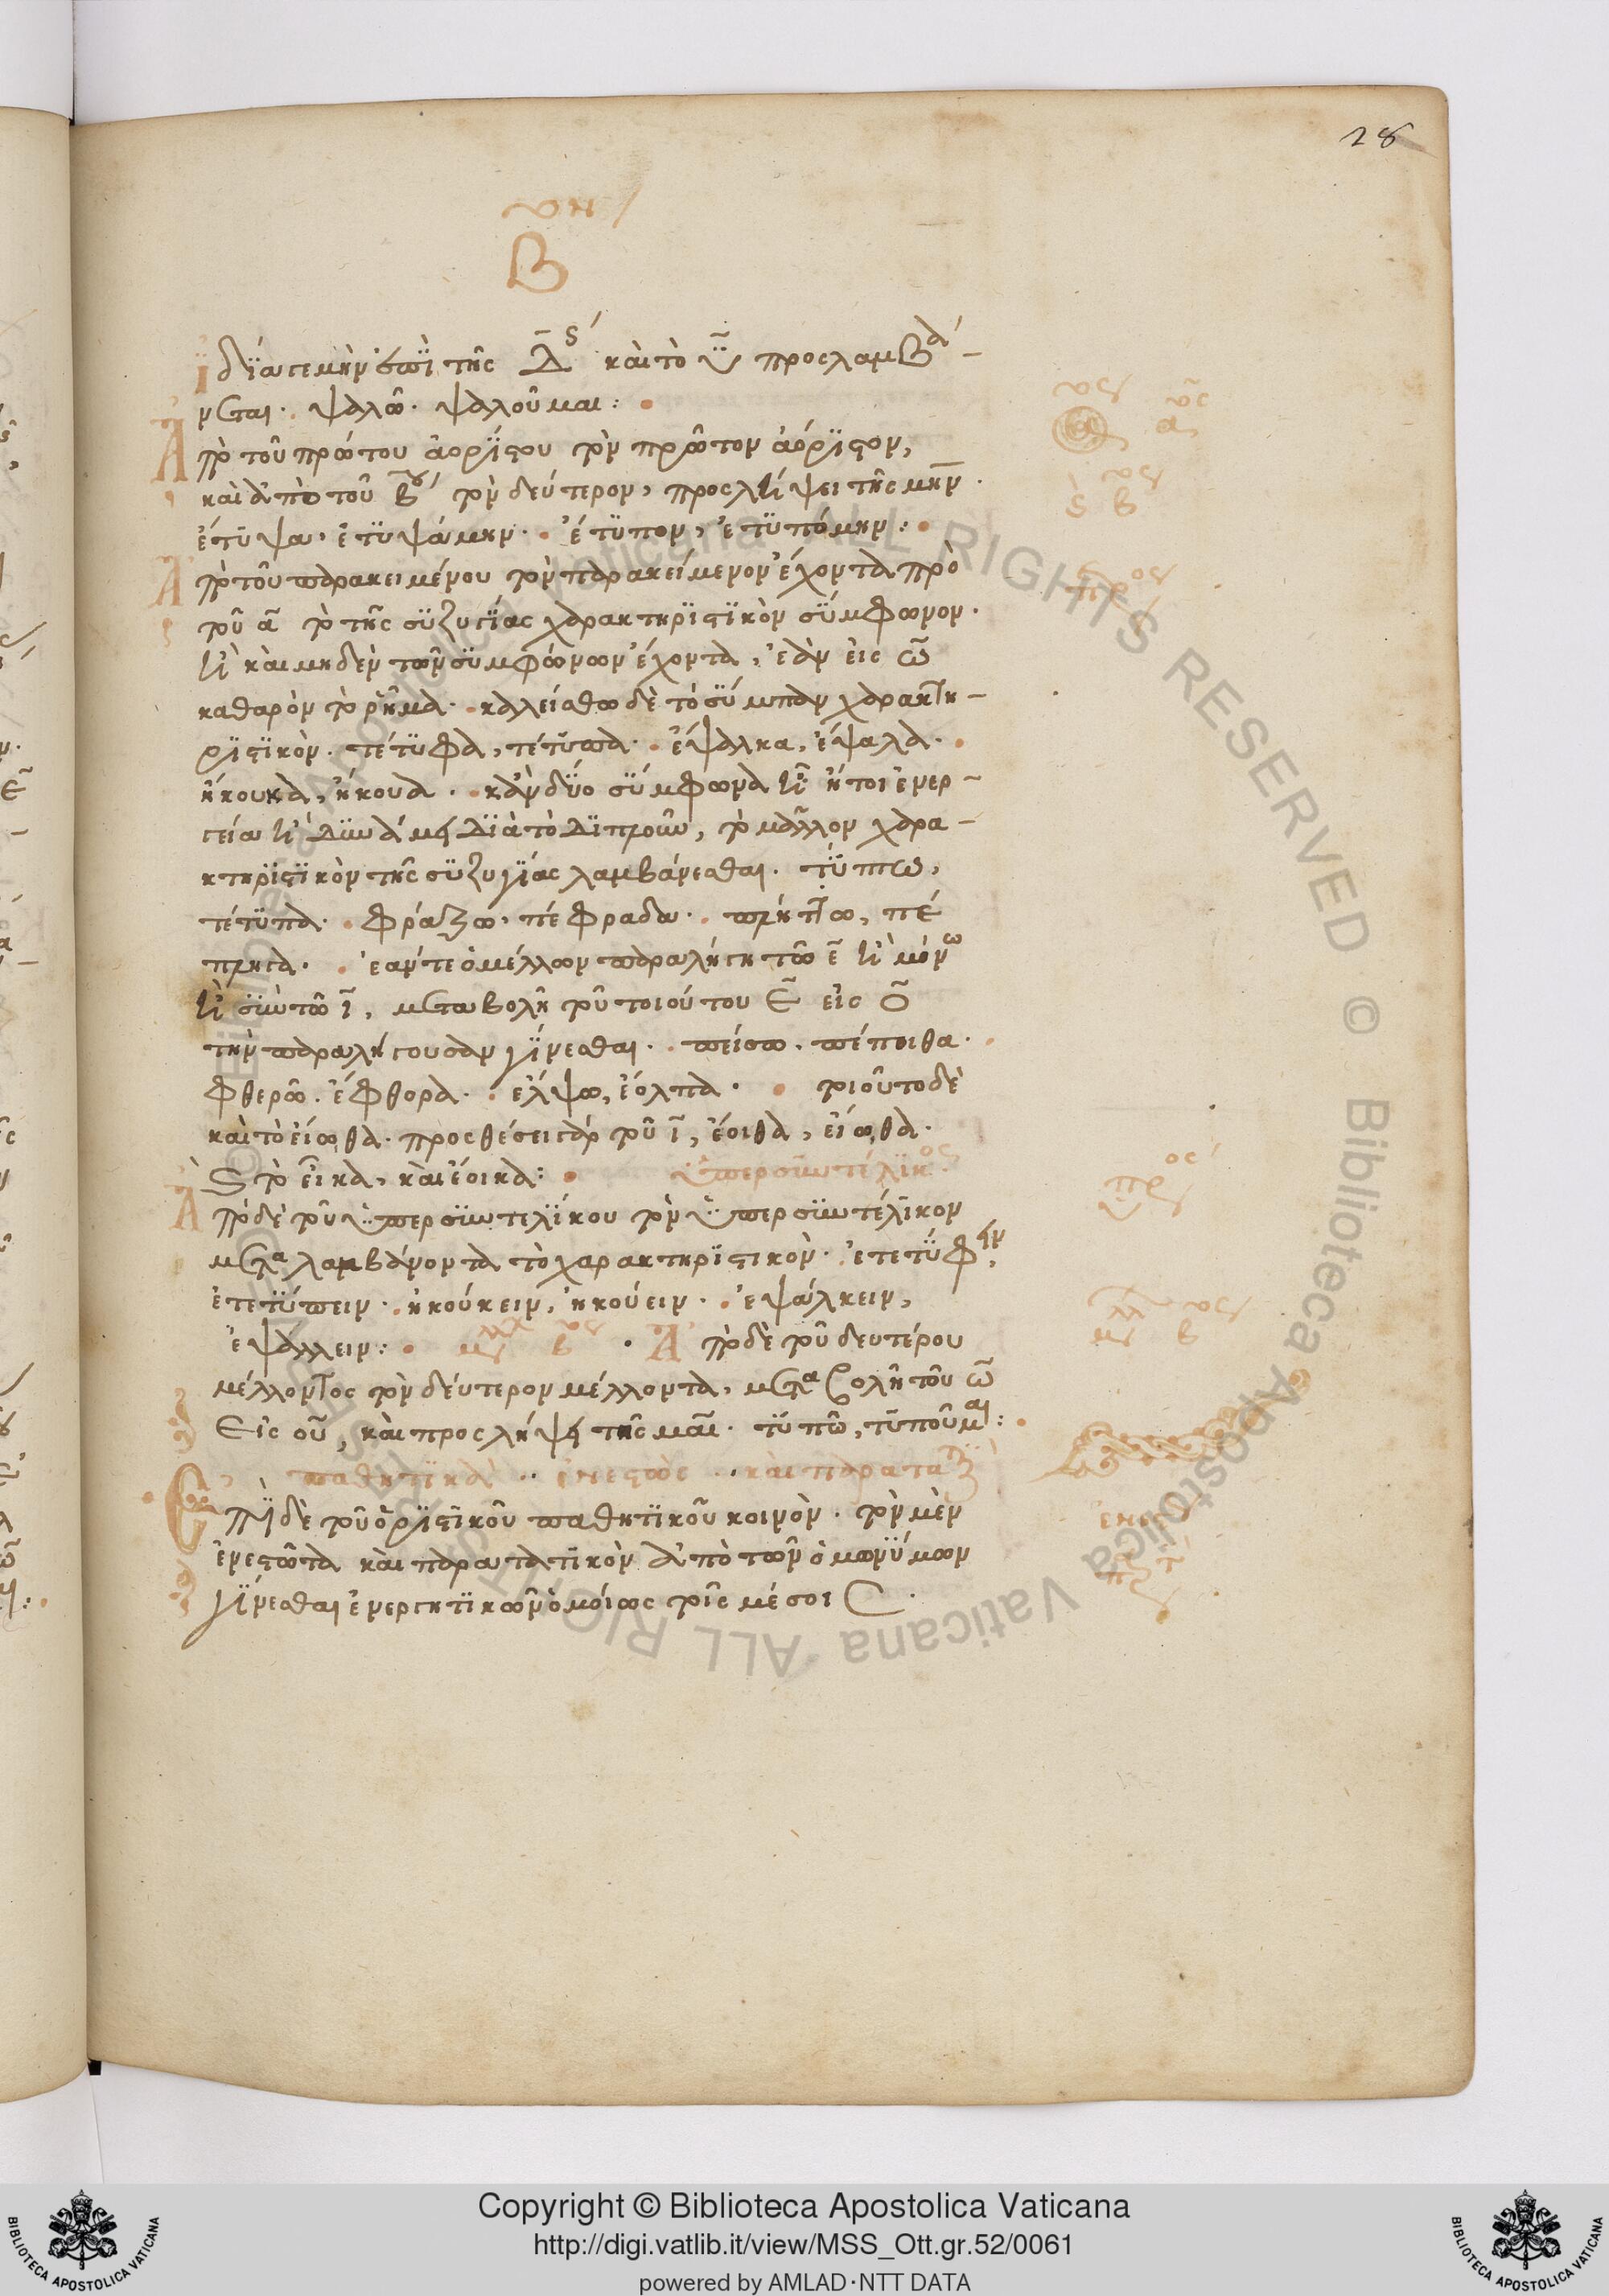 28
Β
ἰδίως γε μὴν ἐπὶ τῆς Δ ς΄ καὶ τὸ ῡ προσλαμβά-
νεται. ψαλῶ. ψαλοῦμαι:
Ἀπὸ τοῦ πρώτου ἀορίστου τὸν πρῶτον ἀόριστον,
καὶ ἀπὸ τοῦ βου τὸν δεύτερον, προσλήψει τῆς μην.
ἔτυψα, ἐτυψάμην. ἔτυπον, ἐτυπόμην:
Ἀπὸ τοῦ παρακειμένου τὸν παρακείμενον ἔχοντα πρὸ
τοῦ α τὸ τῆς συζυγίας χαρακτηριστικὸν σύμφωνον.
ἢ καὶ μηδὲν τῶν συμφώνων ἔχοντα, ἐὰν εἰς ω
καθαρὸν τὸ ῥῆμα. καλείσθω δὲ τὸ σύμπαν χαρακτη-
ριστικόν. τέτυφα, τέτυπα. ἔψαλκα, ἔψαλα.
ἤκουκα, ἤκουα. κἂν δύο σύμφωνα ἢ ἤτοι ἐνερ-
γεία ἢ δυνάμει διὰ τὸ διπλοῦν, τὸ μᾶλλον χαρα-
κτηριστικὸν τῆς συζυγίας λαμβάνεσθαι. τύπτω,
τέτυπα. φράζω, πέφραδα. πλήττω, πέ
πληγα. ἐάν τε ὁ μέλλων παραλήγη τῶ ε ἢ μόνω
ἢ σὺν τῶ ι, μεταβολῆ τοῦ τοιούτου ε εἰς ο
τὴν παραλήγουσαν γίνεσθαι. πείσω. πέποιθα.
φθερῶ. ἔφθορα. ἔλψω, ἔολπα. τοιοῦτο δὲ
καὶ τὸ εἴωθα. προσθέσει γὰρ τοῦ ι, ἔοιθα, εἴωθα.
ὡς τὸ εἶκα, καὶ ἔοικα: ὑπερσυντέλικος
Ἀπὸ δὲ τοῦ ὑπερσυντελίκου τὸν ὑπερσυντέλικον
μεταλαμβάνοντα τὸ χαρακτηριστικόν. ἐτετύφειν,
ἐτετύπειν. ἠκούκειν, ἠκούειν. ἐψάλκειν,
ἐψάλλειν: μ β Ἀπὸ δὲ τοῦ δευτέρου
μέλλοντος τὸν δεύτερον μέλλοντα, μεταβολῆ τοῦ ω
εἰς ου, καὶ προσλήψει τῆς μαι. τυπῶ, τυποῦμαι:
παθητικὰ ἐνεστὼς καὶ παρατα
Ἐπὶ δὲ τοῦ ὁριστικοῦ παθητικοῦ κοινόν. τὸν μὲν
ἐνεστῶτα καὶ παρατατικὸν ἀπὸ τῶν ὁμωνύμων
γίνεσθαι ἐνεργητικῶν ὁμοίως τοῖς μέσοις.
Copyright © Biblioteca Apostolica Vaticana
http://digi.vatlib.it/view/MSS_Ott.gr.52/0061
powered by AMLAD·NTT DATA